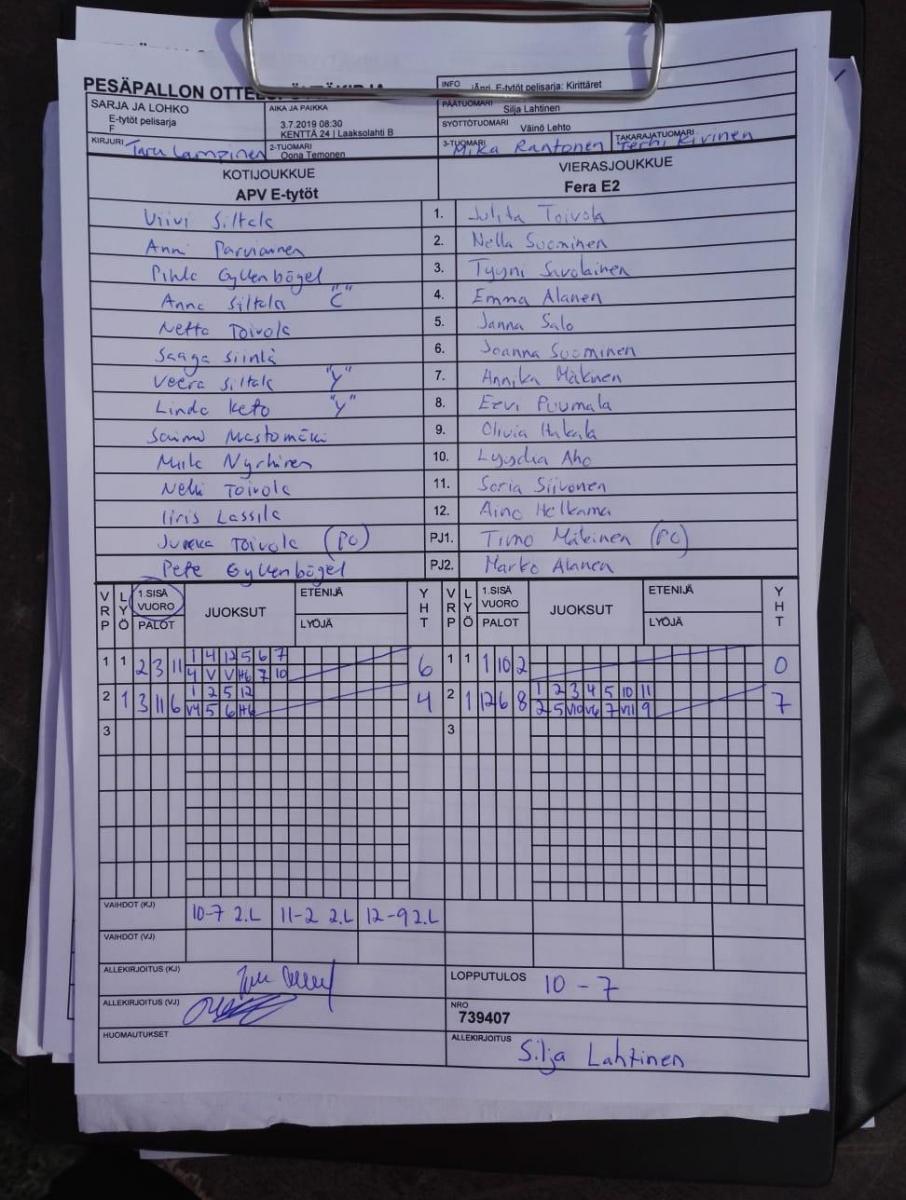 PESÄPALLON
INFO jÄnri, E-tytöt pelisarja: Kirittäret
SARJA JA LOHKO
E-tytöt pelisarja
F
AIKA JA PAIKKA
3.7.2019 08:30
KENTTÄ 24 | Laaksolahti B
PÄÄTUOMARI Silja Lahtinen
SYÖTTÖTUOMARI Väinö Lehto
KIRJURI Taru Lampinen
2-TUOMARI Oona Temonen
3-TUOMARI Mika Rantonen
TAKARAJATUOMARI Terhi Kivinen
KOTIJOUKKUE
APV E-tytöt
VIERASJOUKKUE
Fera E2
Viivi Siltala 1. Julita Toivola
Anni Parviainen 2. Nella Suominen
Pihla Gyllenbögel 3. Tyyni Savolainen
Anna Siltala "C" 4. Emma Alanen
Netta Toivola 5. Janna Salo
Saaga Siintä 6. Joanna Suominen
Veera Siltala "Y" 7. Annika Mäkinen
Linda Keto "Y" 8. Eevi Puumala
Saimi Mastomäki 9. Olivia Hakala
Mila Nyrhinen 10. Lyydia Aho
Nelli Toivola 11. Soria Siivonen
Iiris Lassila 12. Aino Helkama
Jukka Toivola (PC) PJ1. Timo Mäkinen (PC)
Pete Gyllenbögel PJ2. Marko Alanen
VRP LYÖ 1.SISÄ VUORO PALOT JUOKSUT ETENIJÄ LYÖJÄ YHT VRP LYÖ 1.SISÄ VUORO PALOT JUOKSUT ETENIJÄ LYÖJÄ YHT
1 1 2 3 11 1 4 12 5 6 7 6 1 1 1 10 2 0
4 V V H6 7 10
2 1 3 11 6 1 2 5 12 4 2 1 12 6 8 1 2 3 4 5 10 11 7
V4 5 6 H6 2 5 V10 V6 7 V11 9
3 3
VAIHDOT (KJ) 10-7 2.L 11-2 2.L 12-9 2.L
VAIHDOT (VJ)
ALLEKIRJOITUS (KJ)
LOPPUTULOS 10 - 7
ALLEKIRJOITUS (VJ)
NRO
739407
HUOMAUTUKSET
ALLEKIRJOITUS Silja Lahtinen